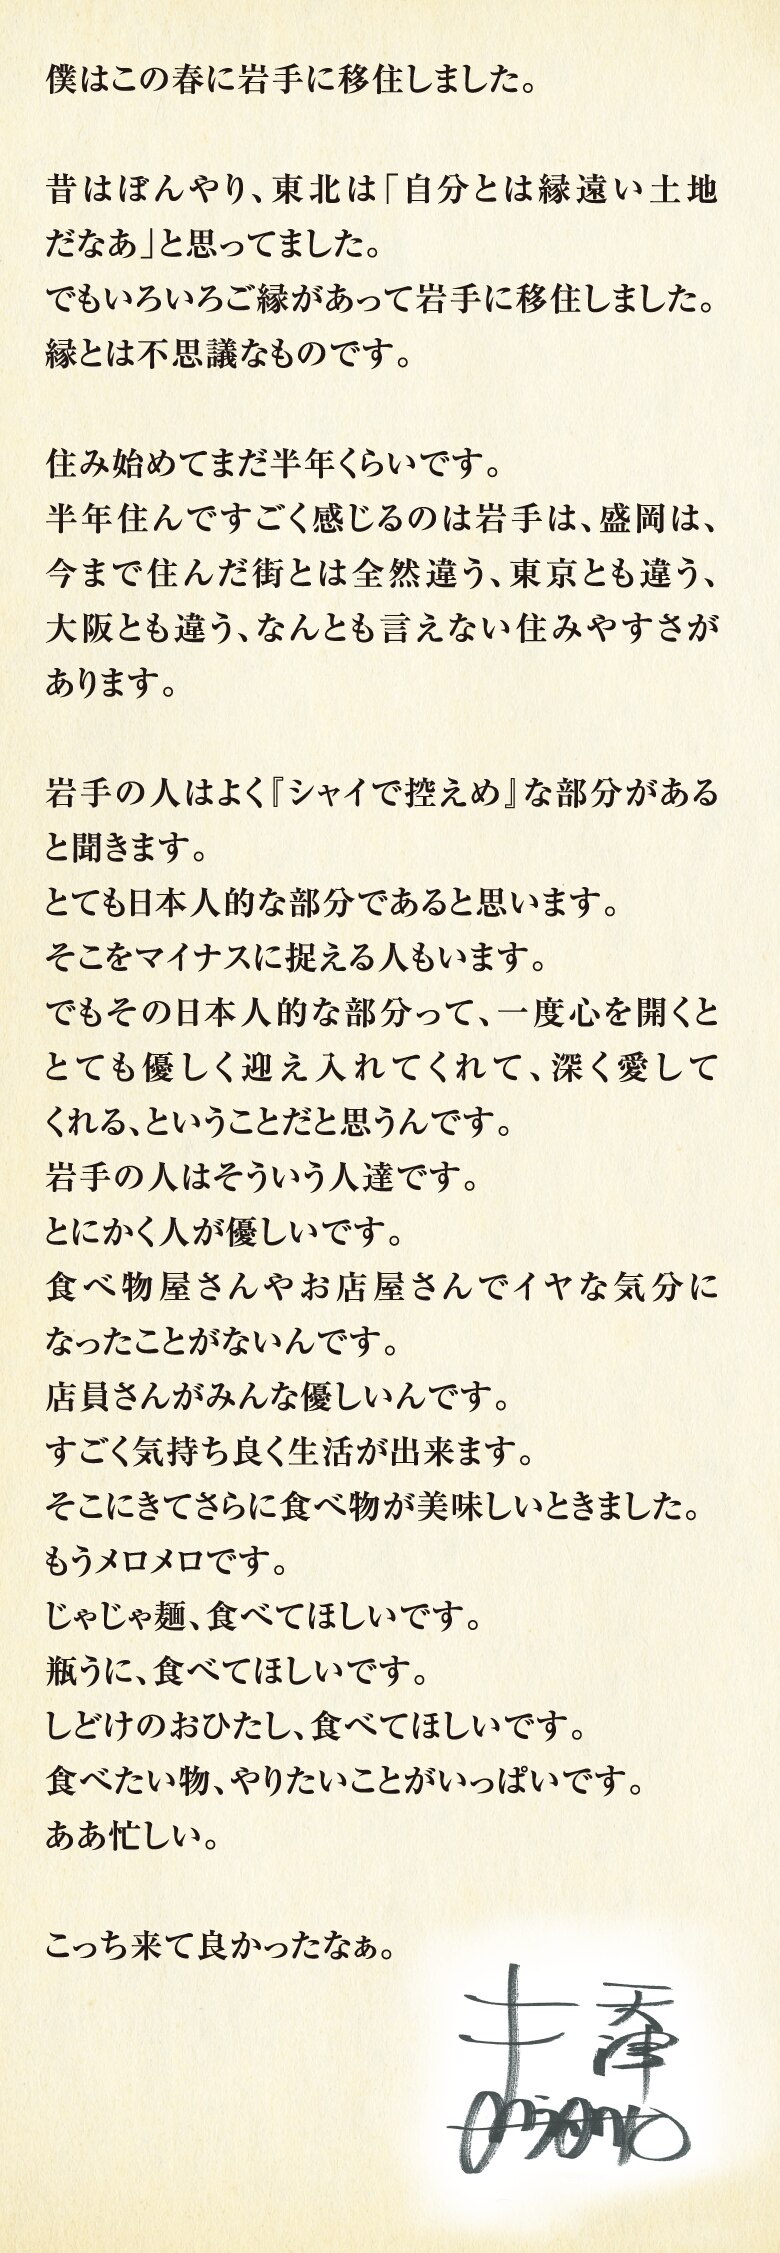 僕はこの春に岩手に移住しました。
昔はぼんやり、東北は「自分とは縁遠い土地
だなあ」と思ってました。
でもいろいろご縁があって岩手に移住しました。
縁とは不思議なものです。
住み始めてまだ半年くらいです。
半年住んですごく感じるのは岩手は、盛岡は、
今まで住んだ街とは全然違う、東京とも違う、
大阪とも違う、なんとも言えない住みやすさが
あります。
岩手の人はよく『シャイで控えめ』な部分がある
と聞きます。
とても日本人的な部分であると思います。
そこをマイナスに捉える人もいます。
でもその日本人的な部分って、一度心を開くと
とても優しく迎え入れてくれて、深く愛して
くれる、ということだと思うんです。
岩手の人はそういう人達です。
とにかく人が優しいです。
食べ物屋さんやお店屋さんでイヤな気分に
なったことがないんです。
店員さんがみんな優しいんです。
すごく気持ち良く生活が出来ます。
そこにきてさらに食べ物が美味しいときました。
もうメロメロです。
じゃじゃ麺、食べてほしいです。
瓶うに、食べてほしいです。
しどけのおひたし、食べてほしいです。
食べたい物、やりたいことがいっぱいです。
ああ忙しい。
こっち来て良かったなぁ。
天津